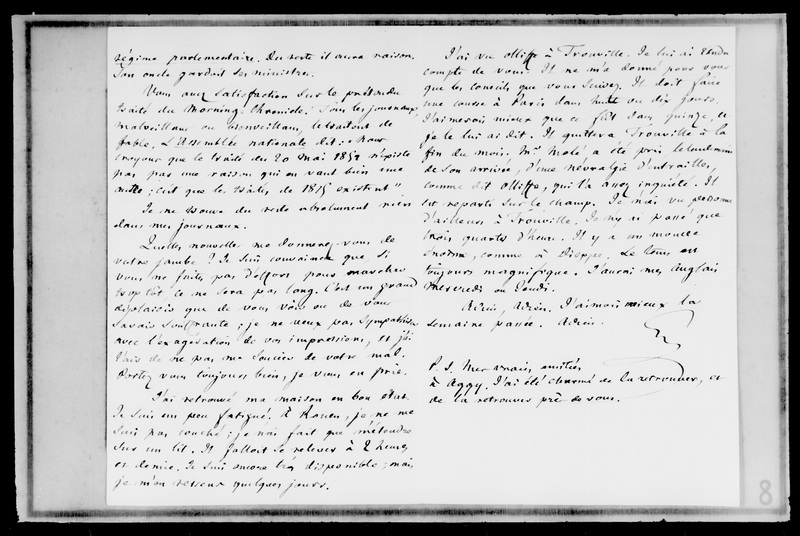 régime parlementaire. Du reste il aura raison.
Son oncle gardait ses ministres.
Vous avez satisfaction sur le prétendu
traité du Morning-Chronicle. Tous les journaux,
malveillans ou bienveillans, le traitent de
fable. L'Assemblée nationale dit : "Pour
croyons que le traité du 20 mai 1852 n'existe
pas par une raison qui en vaut bien une
autre ; c'est que les traités de 1815 existent."
Je ne trouve du reste absolument rien
dans mes journaux.
Quelles nouvelles me donnerez-vous de
votre jambe ? Je suis convaincu que, si
vous ne faites pas d'effort pour marcher
trop tôt ce ne sera pas long. C'est un grand
déplaisir que de vous voir ou de vous
savoir souffrante ; je ne veux pas sympathiser
avec l'exagération de vos impressions, et j'ai
l'air de ne pas me soucier de votre mal.
Portez vous toujours bien, je vous en prie.
J'ai retrouvé ma maison en bon état.
Je suis un peu fatigué. A Rouen, je ne me
suis pas couché ; je n'ai fait que m'étendre
sur un lit. Il falloit se relever à 2 heures
et demie. Je suis encore très disponible ; mais
je m'en ressens quelques jours.
J'ai vu Olliffe à Trouville. Je lui ai rendu
compte de vous. Il ne m'a donné pour vous
que les conseils que vous suivez. Il doit faire
une course à Paris dans huit ou dix jours.
J'aimerois mieux que ce fût dans quinze, et
je le lui ai dit. Il quittera Trouville à la
fin du mois. Mr Molé a été pris le lendemain
de son arrivée, d'une névralgie d'entrailles,
comme dit Olliffe, qui l'a assez inquiété. Il
est reparti sur le champ. Je n'ai vu personne
d'ailleurs à Trouville. Je n'y ai passé que
trois quarts d'heure. Il y a un monde
énorme, comme à Dieppe. Le tems est
toujours magnifique. J'aurai mes Anglais
Mercredi ou Jeudi.
Adieu, Adieu. J'aimais mieux la
semaine passée. Adieu.
P. S. Mes vraies amitiés
à Aggy. J'ai été charmé de la retrouver, et
de la retrouver près de vous.
8